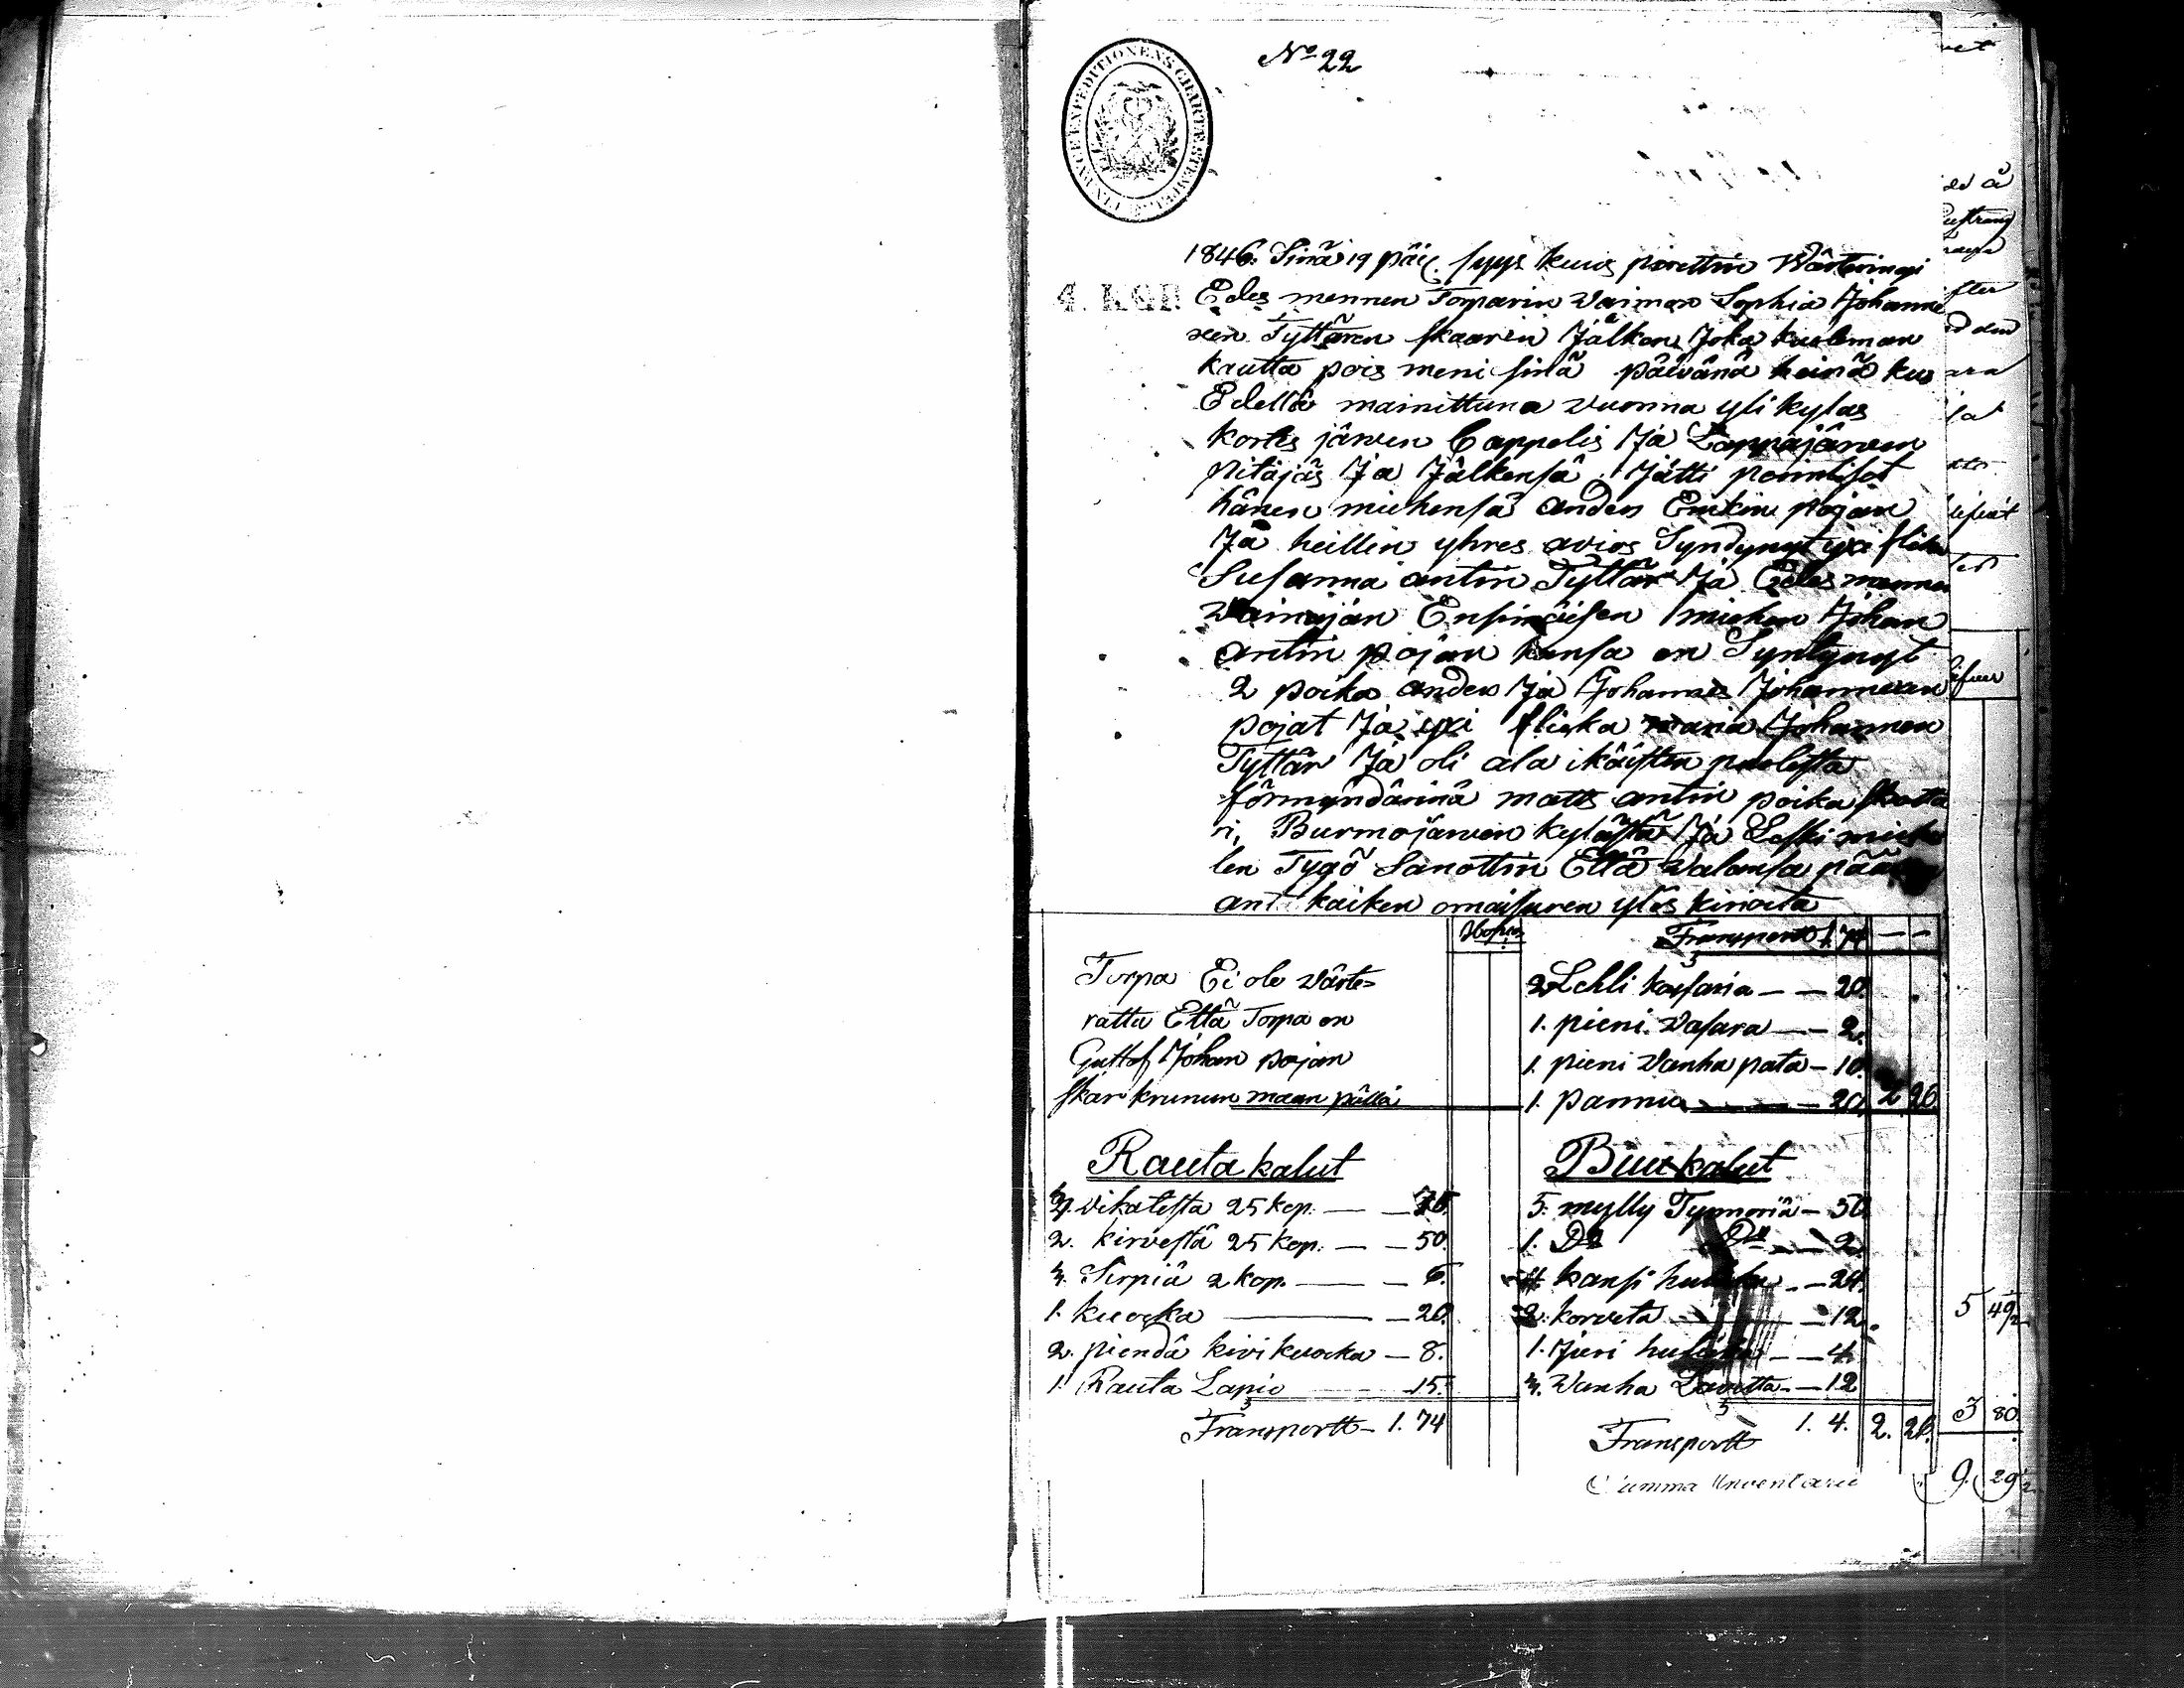 No 22
1846. Sinä 19 päiv. syys kuus pirettin Wärteringi
4. KOP. Edes mennen Torparin vaimon Sophia Johanne
xen Tyttären skaarin Jälken Joka kuoleman
kautta pois meni sinä päivänä heinä kus
Edellä mainittuna vuonna yli kylas
kortes järven Cappelis Ja Lappajärven
pitäjäs Ja Jälkensä Jätti perintiset
hänen miehensä anders Erickin pojan
Ja heillin yhres avios Syndynyt yxi flika
Susanna antin Tyttär Ja Edes mennen
vaimojan Ensimäisen miehen Johan
antin pojan kansa on Syntynyt
2 poika anders Ja Johannes Johannexen
pojat Ja yxi flicka maria Johannen
Tyttär Ja oli ala ikäisten puolesta
förmyndärinä matts antin poika
ri, Purmojärven kylästä Ja Leski miehe
len Tygö Sanottin Että valansa pään
anta kaiken omaisuren ylös kirioita
Hopia
Torpa Ei ole värte=
rattu Että Torpa on
Gustaf Johan pojan
skar krunun maan pällä
Rauta kalut
3. vikatesta 25 kop. — 75.
2. kirvestä 25 kop. — 50.
3. Sirpiä 2 kop. — 6.
1. kuocka — 20.
2. piendä kivi kuocka — 8.
1. Rauta Lapio — 15.
Transportt — 1. 74
Transport 1. 74 — —
2 Lehli — 20.
1. pieni vasara — 2.
1. pieni vanha pata — 10.
1. pannu — 20. 2 26.
Puu kalut
5. mylly Tynnöriä — 50.
1. Do Do — 2.
kansi — 24.
2. korveta — 12.
1. Juri — 4.
3. vanha Savitta — 12
Transportt 1. 4. 2. 26.
Summa Inventarii
5 49 1/2
3 80.
9. 29 1/2